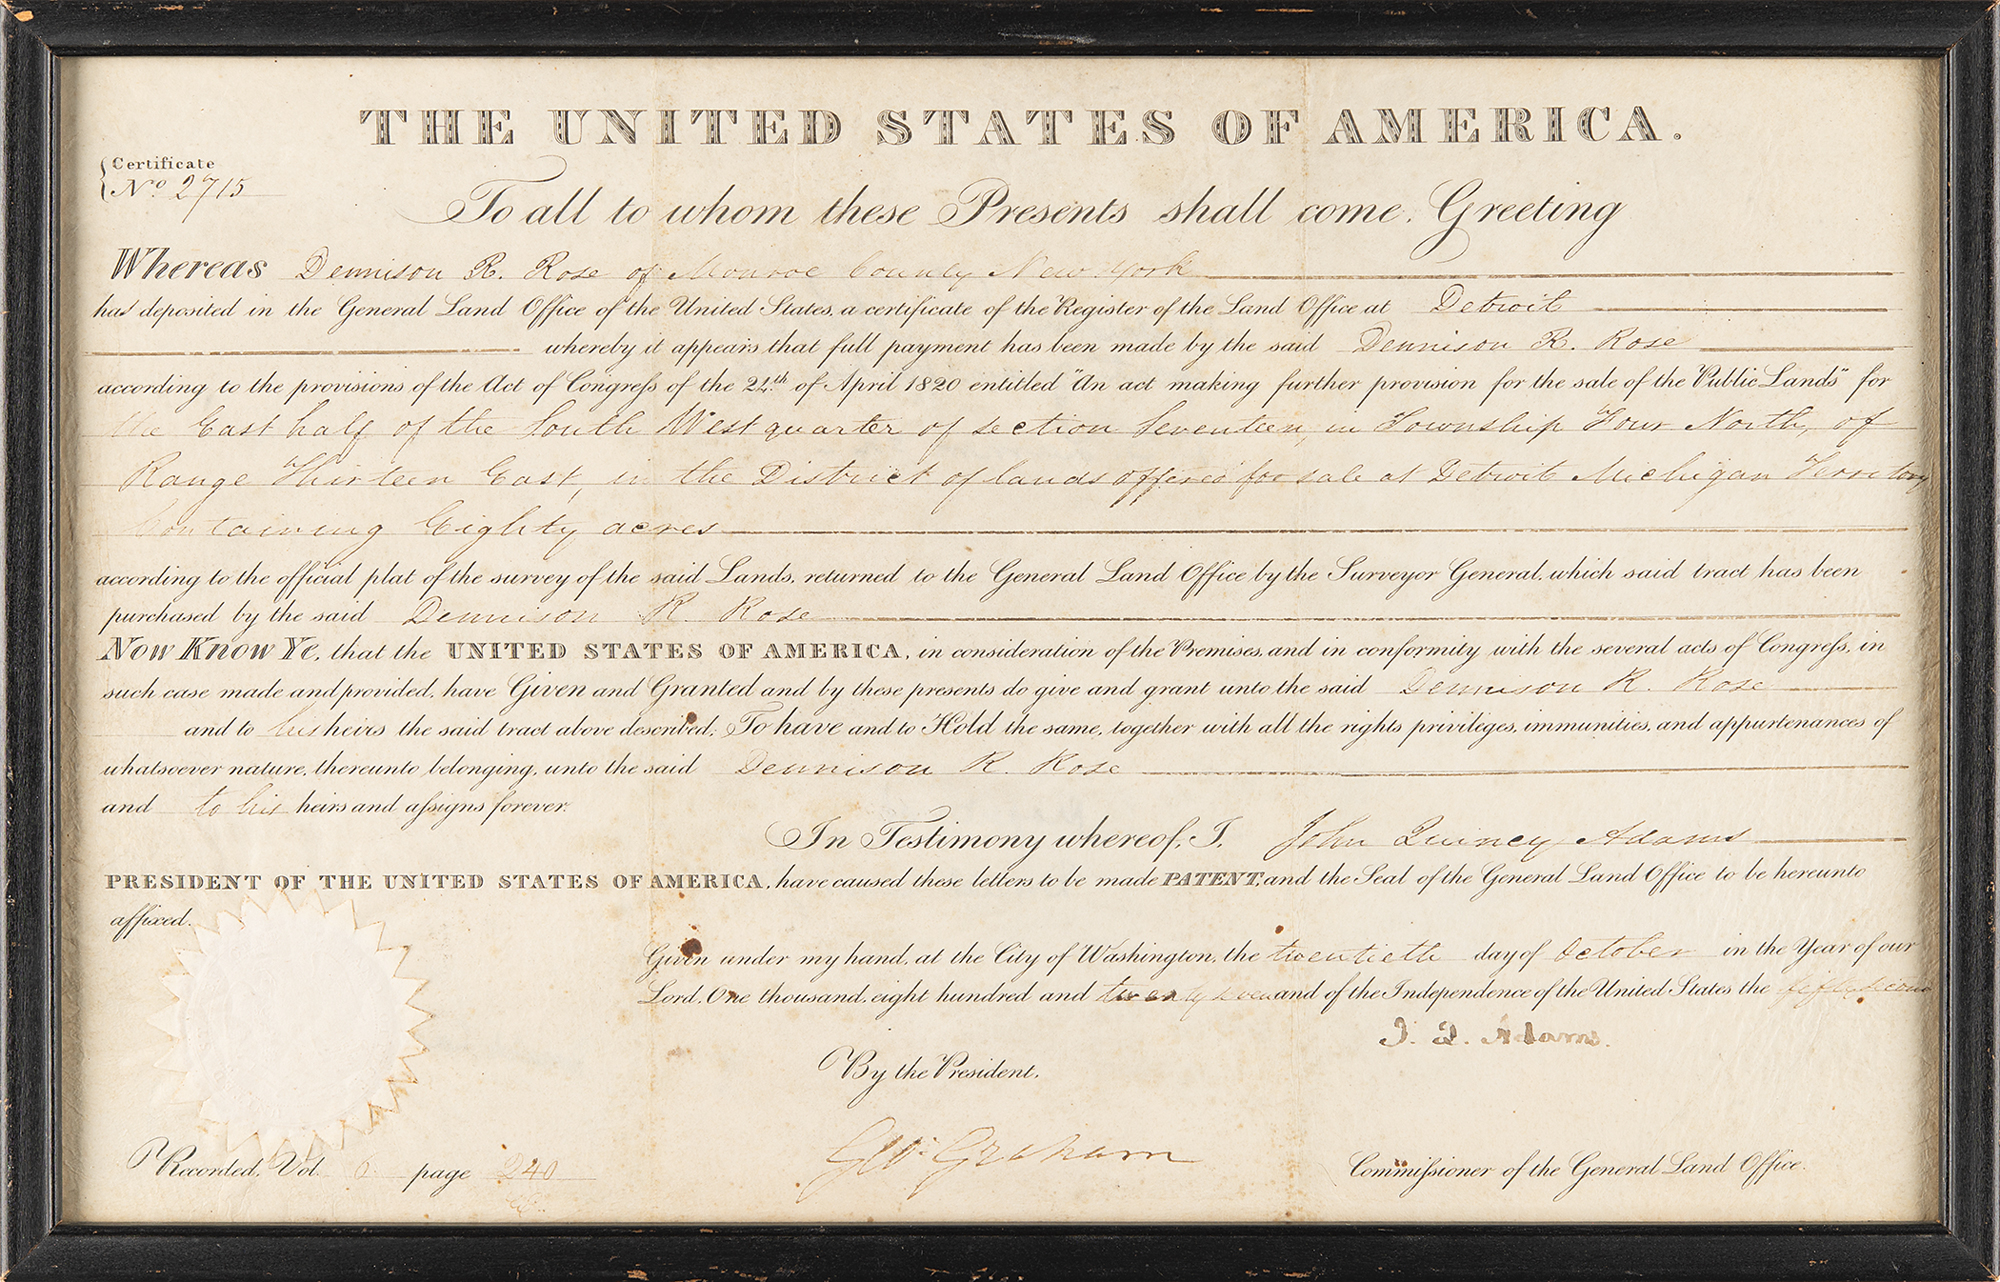 THE UNITED STATES OF AMERICA.
Certificate
No. 2715
To all to whom these Presents shall come, Greeting
Whereas Dennison R. Rose of Monroe County New York
has deposited in the General Land Office of the United States, a certificate of the Register of the Land Office at Detroit
whereby it appears that full payment has been made by the said Dennison R. Rose
according to the provisions of the Act of Congress of the 24th of April 1820 entitled "An act making further provision for the sale of the Public Lands" for
the East half of the South West quarter of section Seventeen, in Township Four North, of
Range Thirteen East, in the District of lands offered for sale at Detroit Michigan Territory
Containing Eighty acres
according to the official plat of the survey of the said Lands, returned to the General Land Office by the Surveyor General, which said tract has been
purchased by the said Dennison R. Rose
Now Know Ye, that the UNITED STATES OF AMERICA, in consideration of the Premises, and in conformity with the several acts of Congress, in
such case made and provided, have Given and Granted and by these presents do give and grant unto the said Dennison R. Rose
and to his heirs the said tract above described; To have and to Hold the same, together with all the rights priviliges, immunities, and appurtenances of
whatsoever nature, thereunto belonging, unto the said Dennison R. Rose
and to his heirs and assigns forever.
In Testimony whereof, I, John Quincy Adams
PRESIDENT OF THE UNITED STATES OF AMERICA, have caused these letters to be made PATENT, and the Seal of the General Land Office to be hereunto
affixed.
Given under my hand, at the City of Washington, the twentieth day of October in the Year of our
Lord, One thousand, eight hundred and twenty seven and of the Independence of the United States the fifty second
J. Q. Adams.
By the President,
Geo: Graham
Recorded, Vol. 6 page 240
Commissioner of the General Land Office.